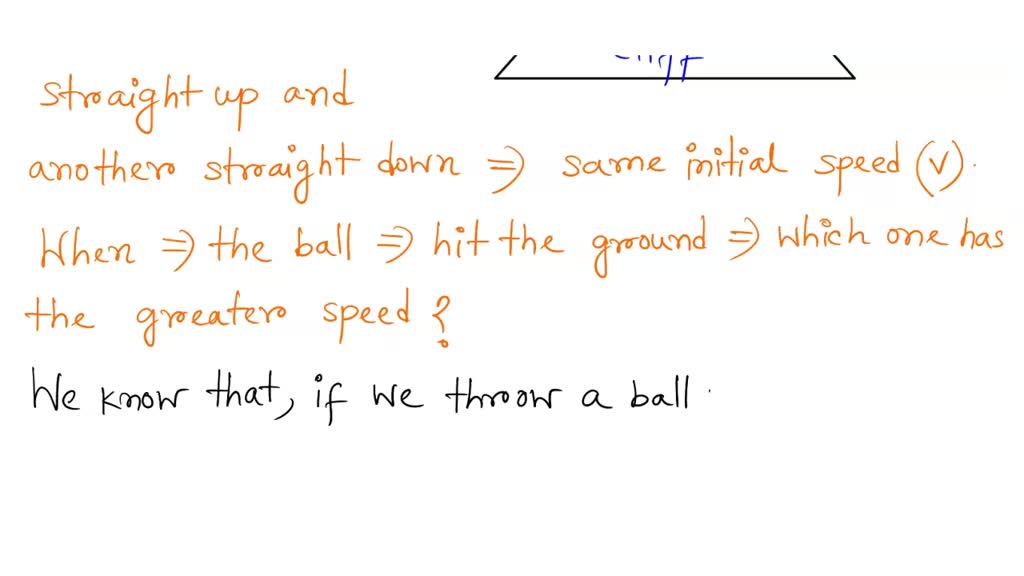 straight up and
another straight down ⇒ same initial speed (v).
When ⇒ the ball ⇒ hit the ground ⇒ which one has
the greater speed?
We know that, if we throw a ball